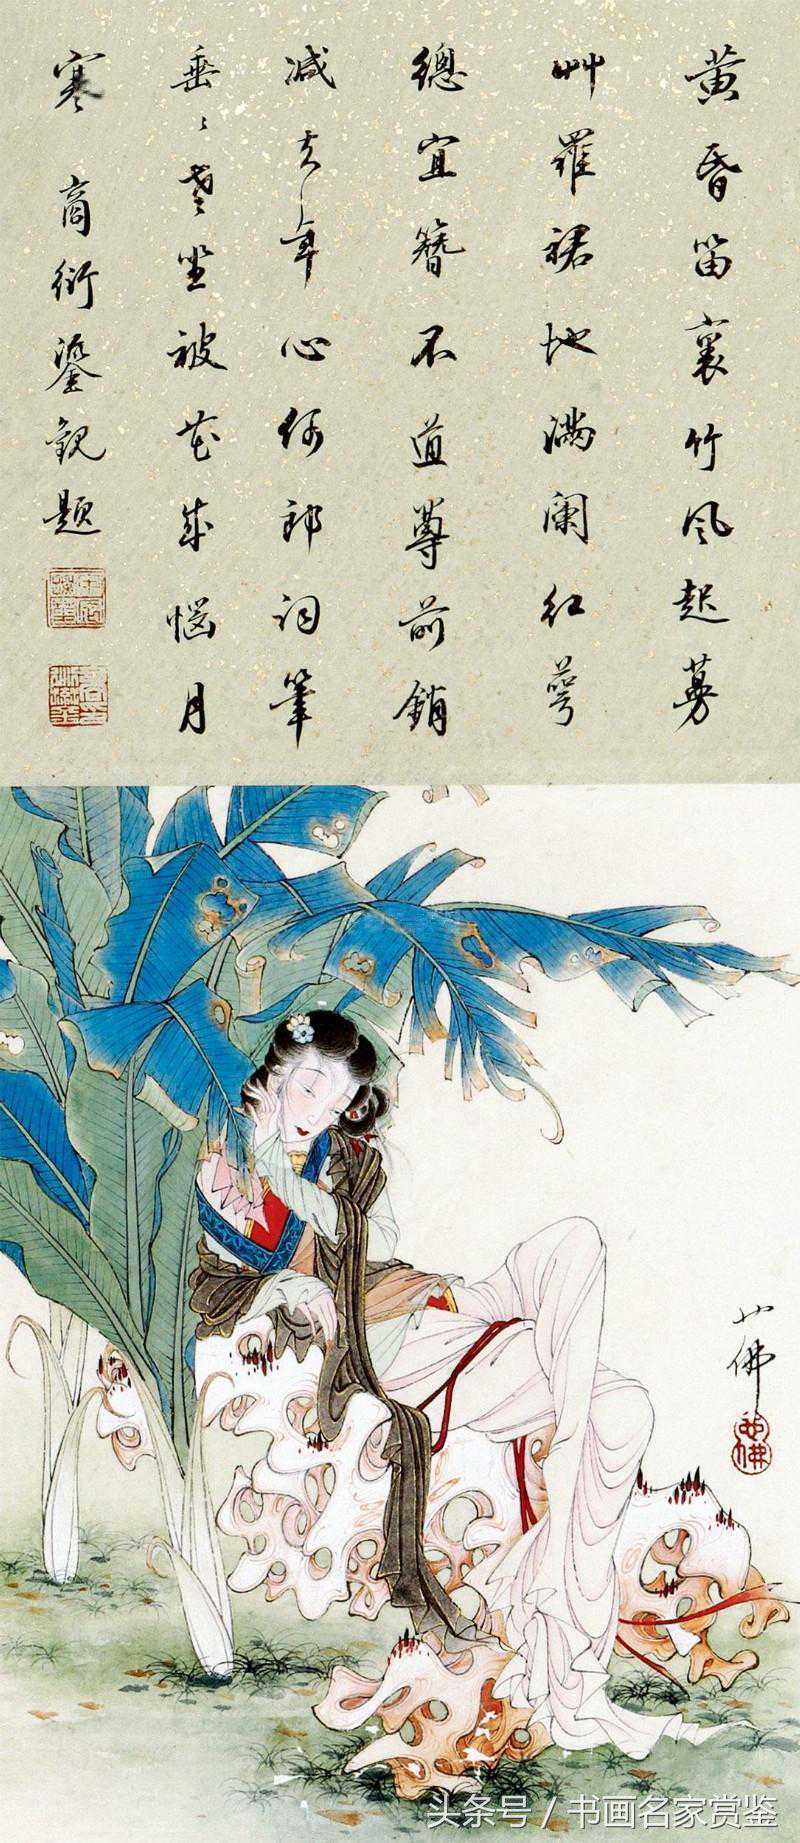 黄昏笛裏竹風起蔓
艸羅裙地滿闌紅萼
總宜簪不道尊前銷
減去年心何郎詞筆
垂〻老坐被花成惱月
寒 商衍鎏觀題
佛
头条号 / 书画名家赏鉴